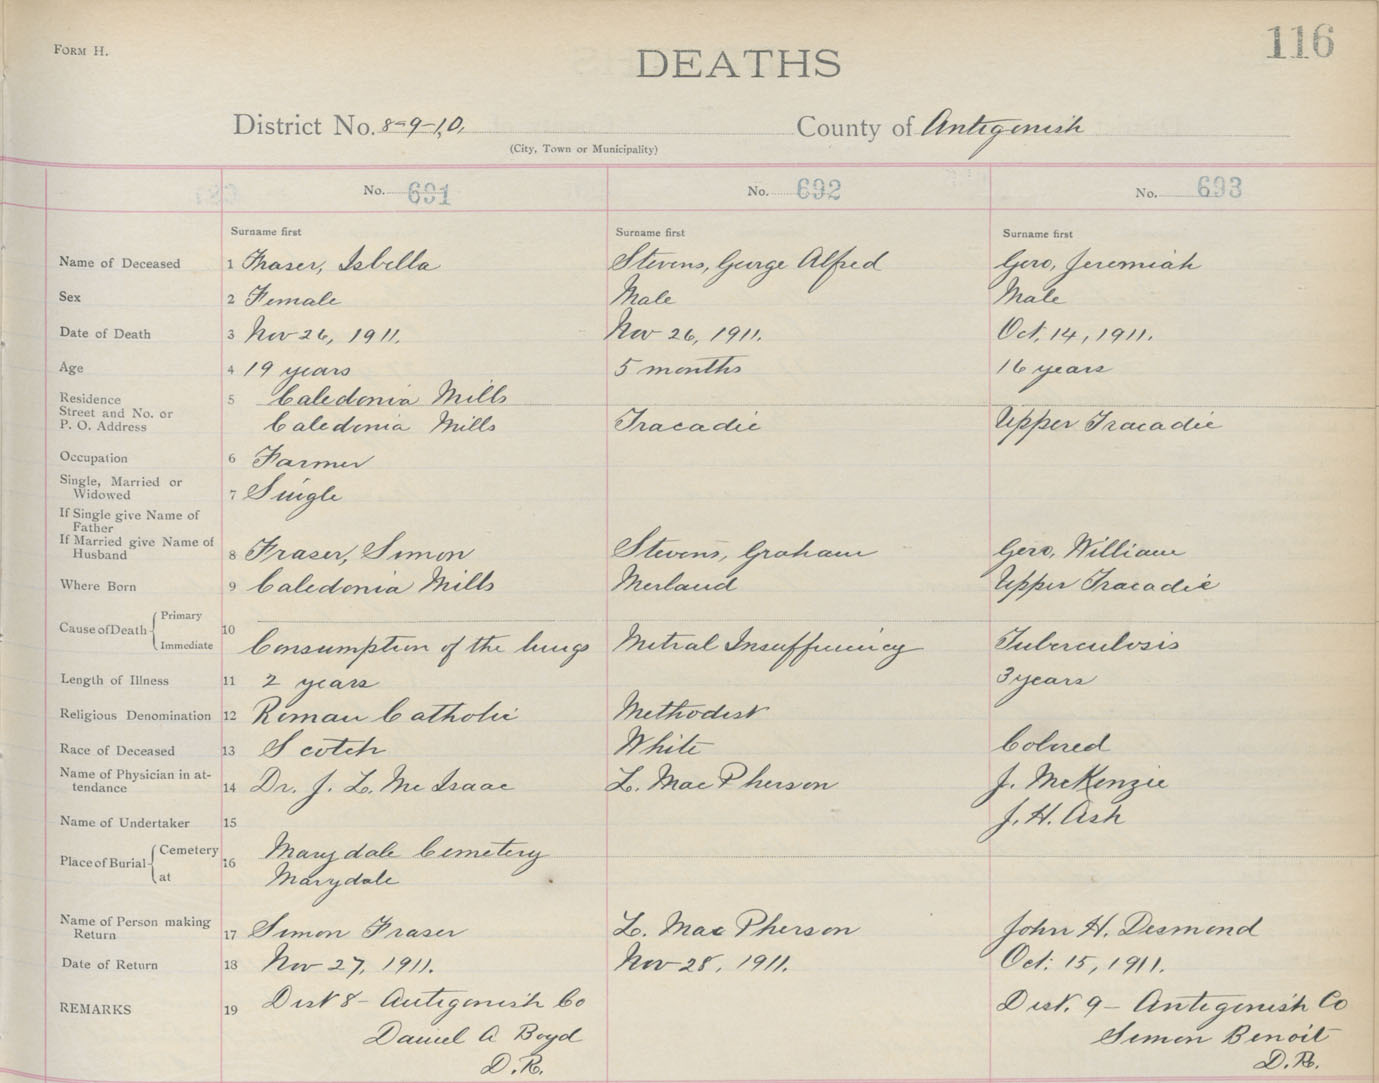 FORM H.
DEATHS
116
District No. 8-9-10.
County of Antigonish
(City, Town or Municipality)
No. 691 No. 692 No. 693
Surname first Surname first Surname first
Name of Deceased 1 Fraser, Isbella Stevens, George Alfred Gero, Jeremiah
Sex 2 Female Male Male
Date of Death 3 Nov 26, 1911. Nov 26, 1911. Oct. 14, 1911.
Age 4 19 years 5 months 16 years
Residence 5 Caledonia Mills
Street and No. or
P. O. Address Caledonia Mills Tracadie Upper Tracadie
Occupation 6 Farmer
Single, Married or
Widowed 7 Single
If Single give Name of
Father
If Married give Name of
Husband 8 Fraser, Simon Stevens, Graham Gero, William
Where Born 9 Caledonia Mills Merland Upper Tracadie
Cause of Death Primary 10
Immediate Consumption of the lungs Mitral Insufficiency Tuberculosis
Length of Illness 11 2 years 3 years
Religious Denomination 12 Roman Catholic Methodist
Race of Deceased 13 Scotch White Colored
Name of Physician in at-
tendance 14 Dr. J. L. Mc Isaac L. MacPherson J. McKenzie
Name of Undertaker 15 J. H. Ash
Place of Burial Cemetery 16 Marydale Cemetery
at Marydale
Name of Person making
Return 17 Simon Fraser L. MacPherson John H. Desmond
Date of Return 18 Nov 27, 1911. Nov 28, 1911. Oct. 15, 1911.
REMARKS 19 Dist 8 - Antigonish Co Dist. 9 - Antigonish Co
Daniel A Boyd Simon Benoit
D.R. D.R.